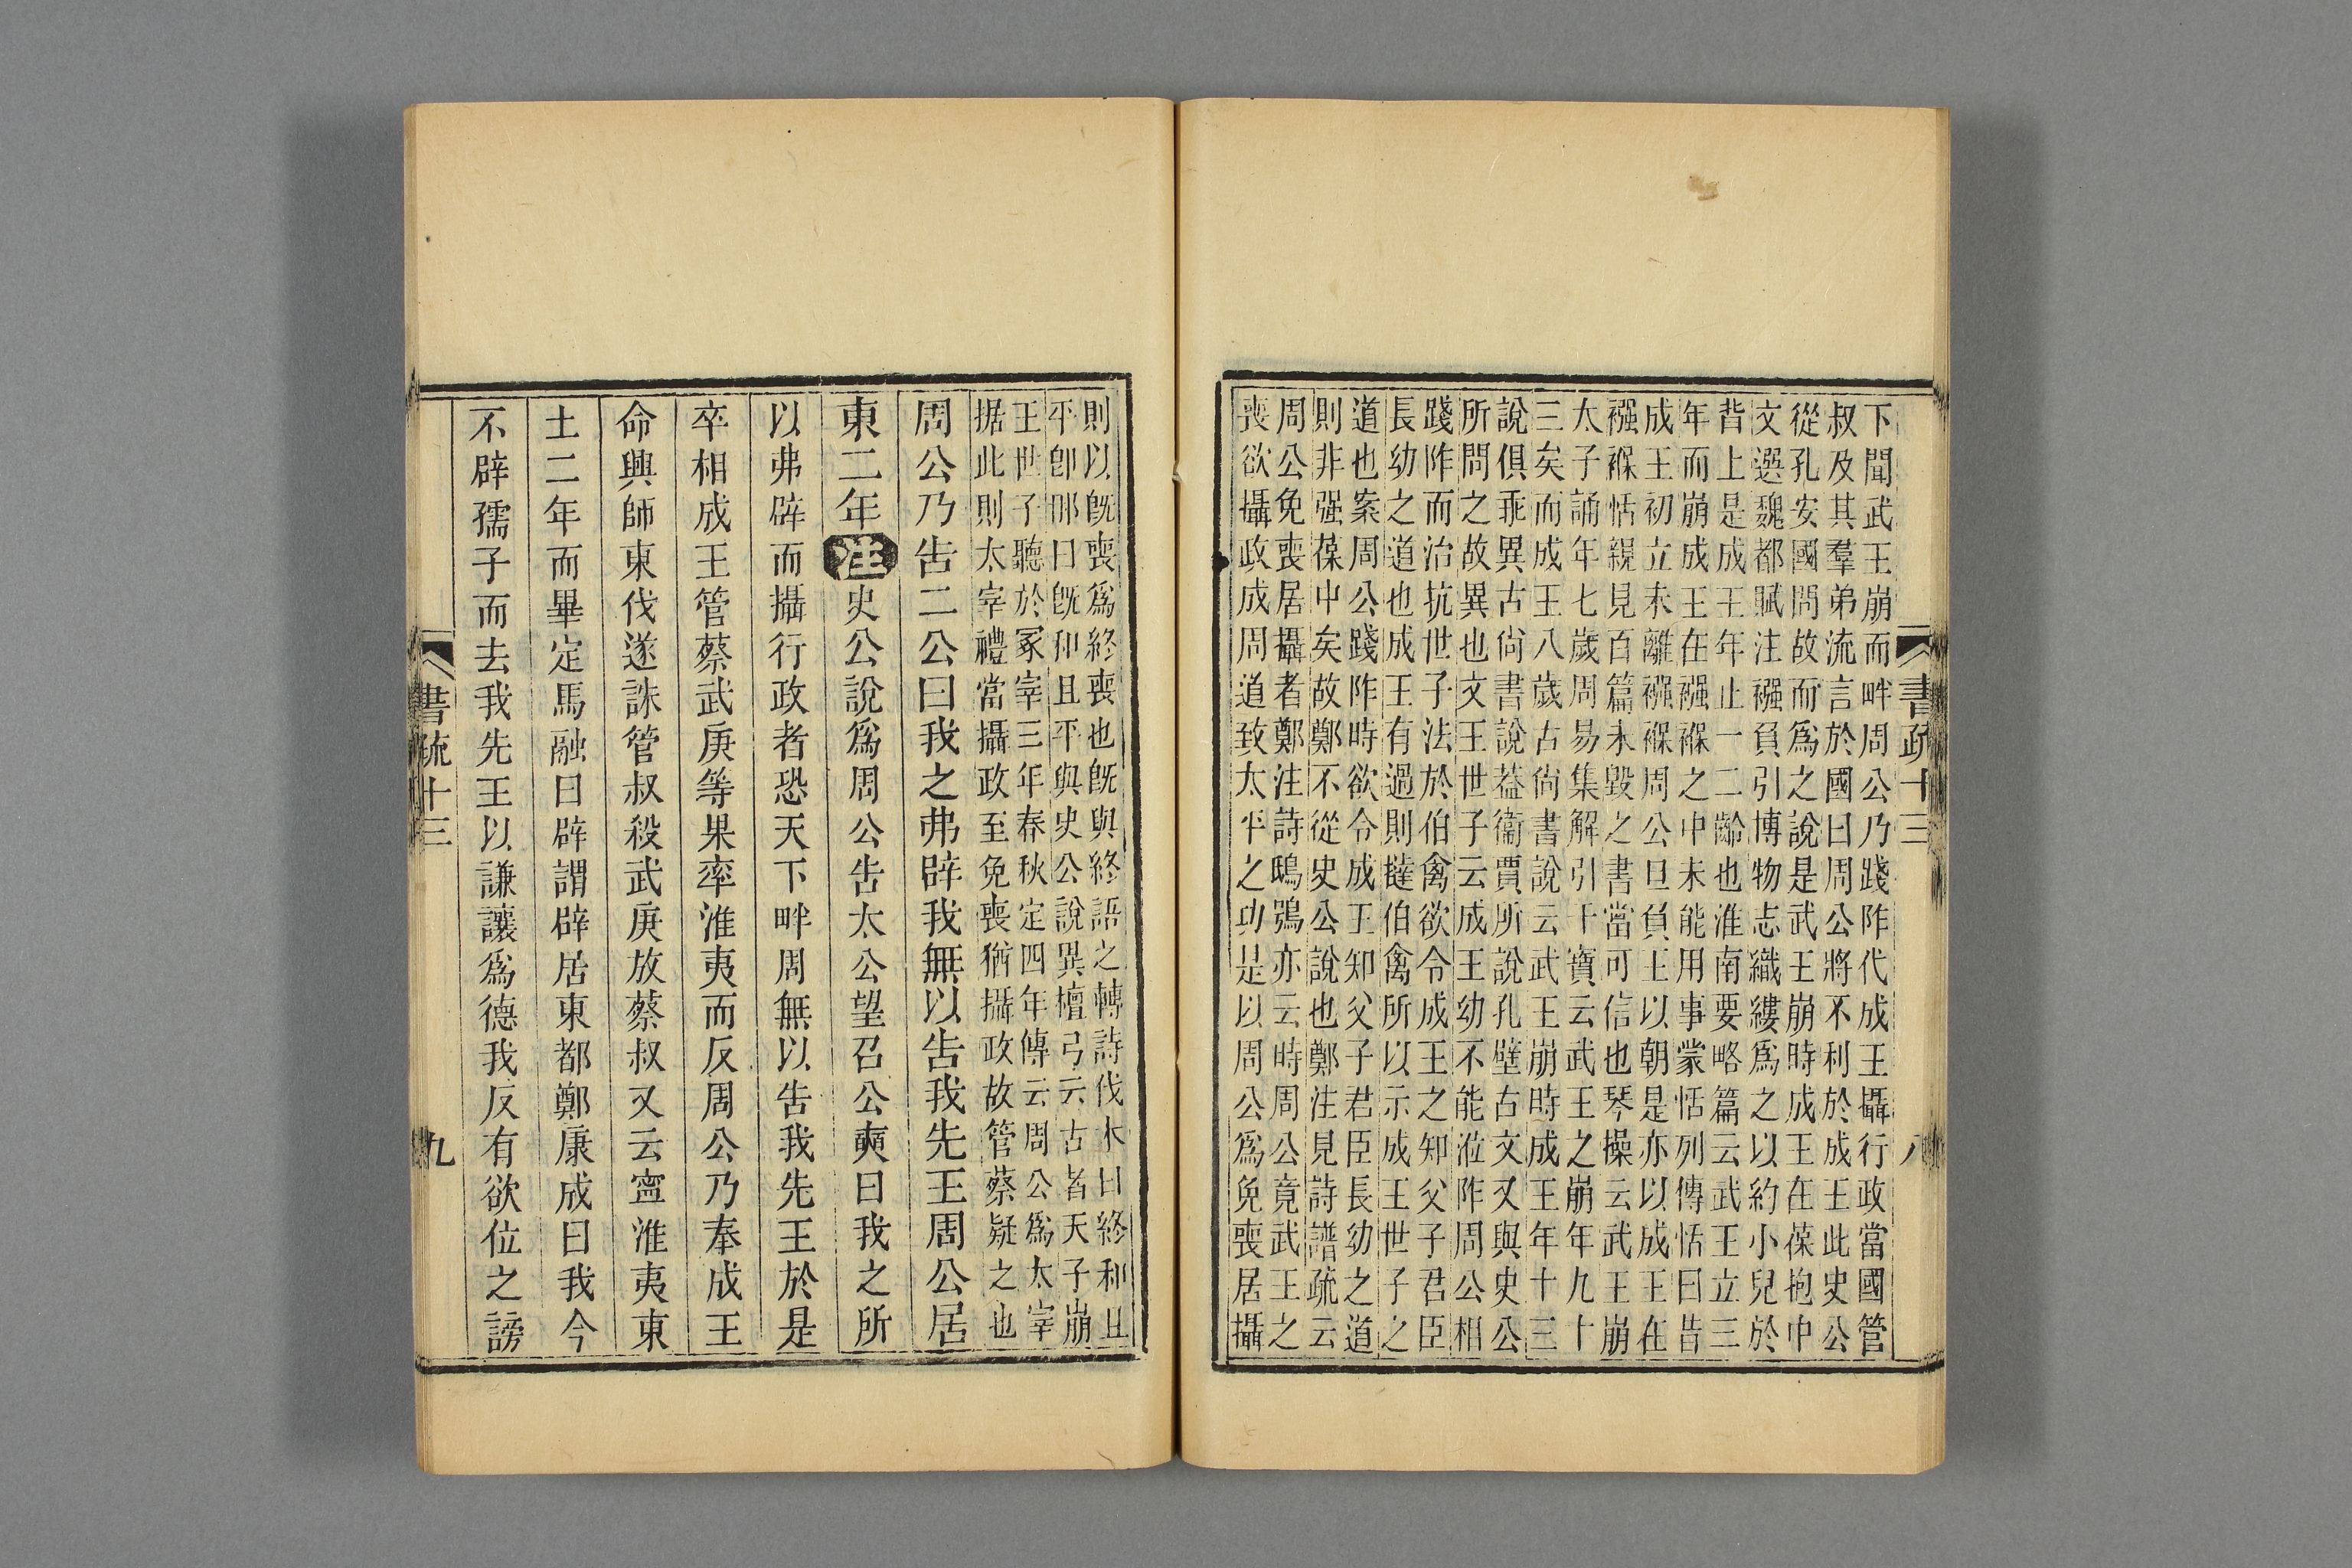 書疏十三
八
下聞武王崩而畔周公乃踐阼代成王攝行政當國管
叔及其羣弟流言於國曰周公將不利於成王此史公
從孔安國問故而爲之說是武王崩時成王在葆抱中
文選魏都賦注襁負引博物志織縷爲之以約小兒於
背上是成王年止一二齡也淮南要略篇云武王立三
年而崩成王在襁褓之中未能用事蒙恬列傳恬曰昔
成王初立未離襁褓周公旦負王以朝是亦以成王在
襁褓恬親見百篇未毀之書當可信也琴操云武王崩
太子誦年七歲周易集解引干寶云武王之崩年九十
三矣而成王八歲古尙書說云武王崩時成王年十三
說俱乖異古尙書說葢衞賈所說孔壁古文又與史公
所問之故異也文王世子云成王幼不能涖阼周公相
踐阼而治抗世子法於伯禽欲令成王之知父子君臣
長幼之道也成王有過則撻伯禽所以示成王世子之
道也案周公踐阼時欲令成王知父子君臣長幼之道
則非强葆中矣故鄭不從史公說也鄭注見詩譜疏云
周公免喪居攝者鄭注詩鴟鴞亦云時周公竟武王之
喪欲攝政成周道致太平之功是以周公爲免喪居攝
則以旣喪爲終喪也旣與終語之轉詩伐木曰終和且
平卽那曰旣和且平與史公說異檀弓云古者天子崩
王世子聽於冢宰三年春秋定四年傳云周公爲太宰
据此則太宰禮當攝政至免喪猶攝政故管蔡疑之也
周公乃告二公曰我之弗辟我無以告我先王周公居
東二年注史公說爲周公告太公望召公奭曰我之所
以弗辟而攝行政者恐天下畔周無以告我先王於是
卒相成王管蔡武庚等果率淮夷而反周公乃奉成王
命興師東伐遂誅管叔殺武庚放蔡叔又云寍淮夷東
土二年而畢定馬融曰辟謂辟居東都鄭康成曰我今
不辟孺子而去我先王以謙讓爲德我反有欲位之謗
書疏十三
九